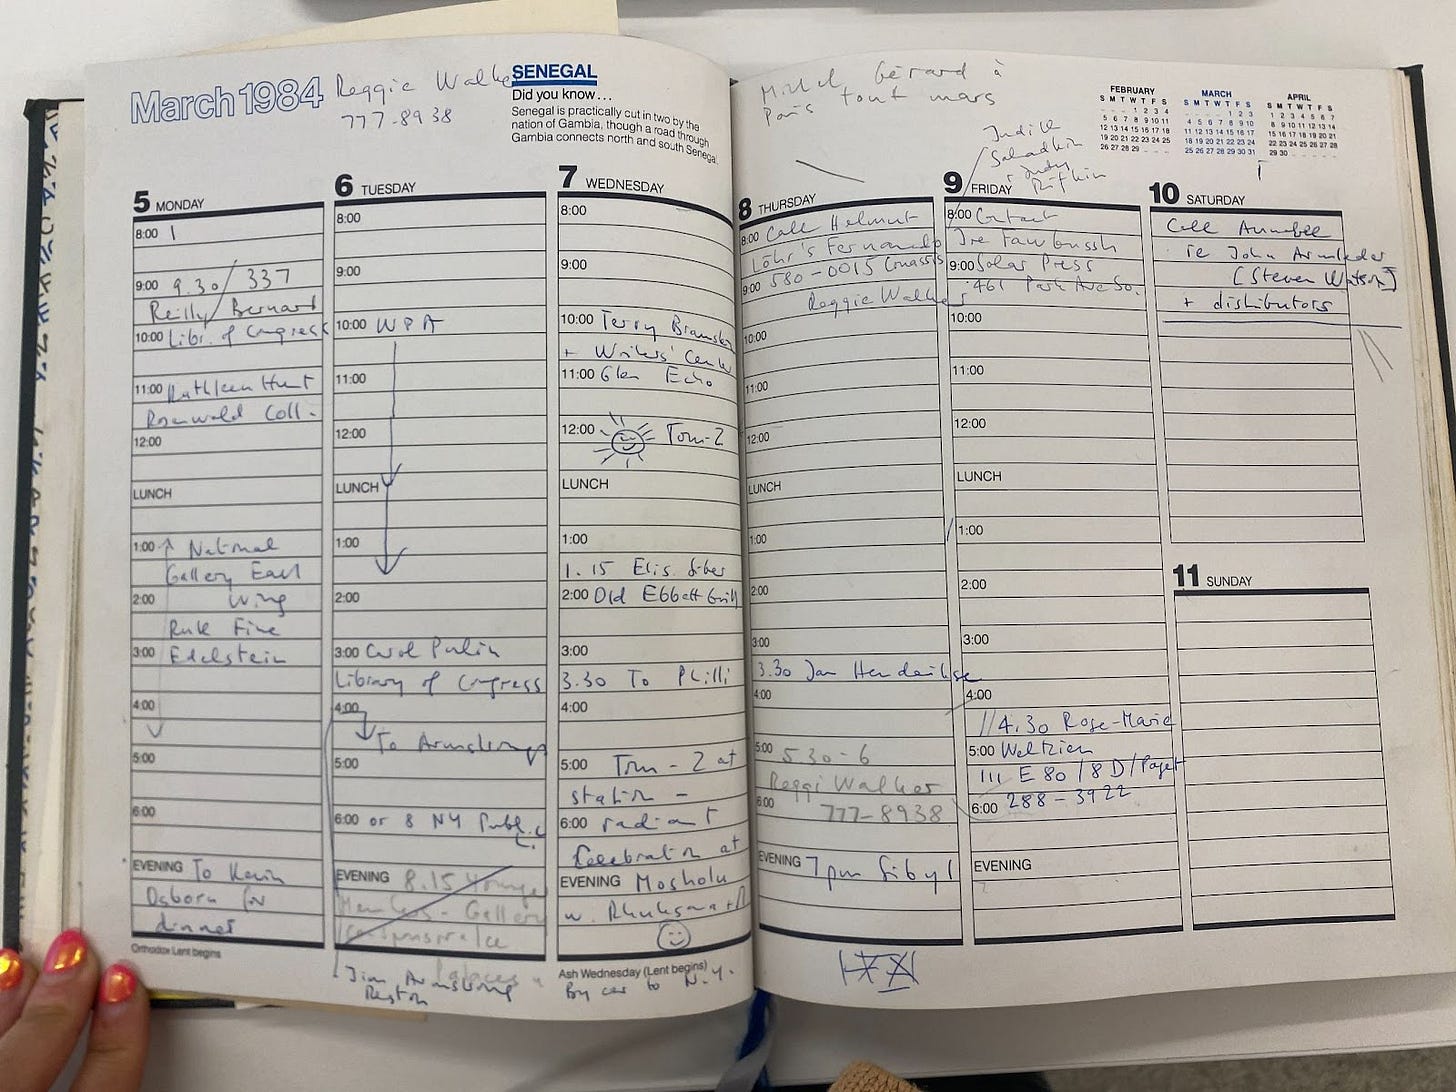 March 1984
Reggie Walker
777-8938
SENEGAL
Did you know...
Senegal is practically cut in two by the
nation of Gambia, though a road through
Gambia connects north and south Senegal.
5 MONDAY
8:00
9:00 9.30 / 337
Reilly / Bernard
10:00 Libr. of Congress
11:00 Kathleen Hunt
Rosenwald Coll.
12:00
LUNCH
1:00 National
Gallery East
2:00 Wing
Ruth Fine
3:00 Edelstein
4:00
5:00
6:00
EVENING To Kevin
Osborn for
dinner
Orthodox Lent begins
6 TUESDAY
8:00
9:00
10:00 WPA
11:00
12:00
LUNCH
1:00
2:00
3:00 Carol Pulin
Library of Congress
4:00
To Armstrongs
5:00
6:00 or 8 NY Publ.
EVENING 8.15 Younger
Members - Gallery
Jim Armstrong
Reston
7 WEDNESDAY
8:00
9:00
10:00 Terry Braunstein
+ Writers' Center
11:00 Glen Echo
12:00 Tom-2
LUNCH
1:00
1.15 Elis.
2:00 Old Ebbett Grill
3:00
3.30 To Philli
4:00
5:00 Tom-2 at
station -
6:00 radiant
Celebration at
EVENING Mosholu
w.
Ash Wednesday (Lent begins)
By car to N.Y.
Michel Gérard à
Paris tout mars
FEBRUARY
S M T W T F S
1 2 3 4
5 6 7 8 9 10 11
12 13 14 15 16 17 18
19 20 21 22 23 24 25
26 27 28 29
MARCH
S M T W T F S
1 2 3
4 5 6 7 8 9 10
11 12 13 14 15 16 17
18 19 20 21 22 23 24
25 26 27 28 29 30 31
APRIL
S M T W T F S
1 2 3 4 5 6 7
8 9 10 11 12 13 14
15 16 17 18 19 20 21
22 23 24 25 26 27 28
29 30
8 THURSDAY
8:00 Call Helmut
Löhr's Fernando
9:00 580-0015
Reggie Walker
10:00
11:00
12:00
LUNCH
1:00
2:00
3:00
3.30 Jan Hendrikse
4:00
5:00 5.30-6
Reggi Walker
6:00 777-8938
EVENING 7pm Sibyl
Judith
Rifkin
9 FRIDAY
8:00 Contact
Ire Fawbussh
9:00 Solar Press
461 Park Ave So.
10:00
11:00
12:00
LUNCH
1:00
2:00
3:00
4:00
4.30 Rose-Marie
5:00 Weltzien
111 E 80 / 8 D / Paget
6:00 288-3922
EVENING
10 SATURDAY
Call Annabee
re John Armleder
[Steven Watson]
+ distributors
11 SUNDAY